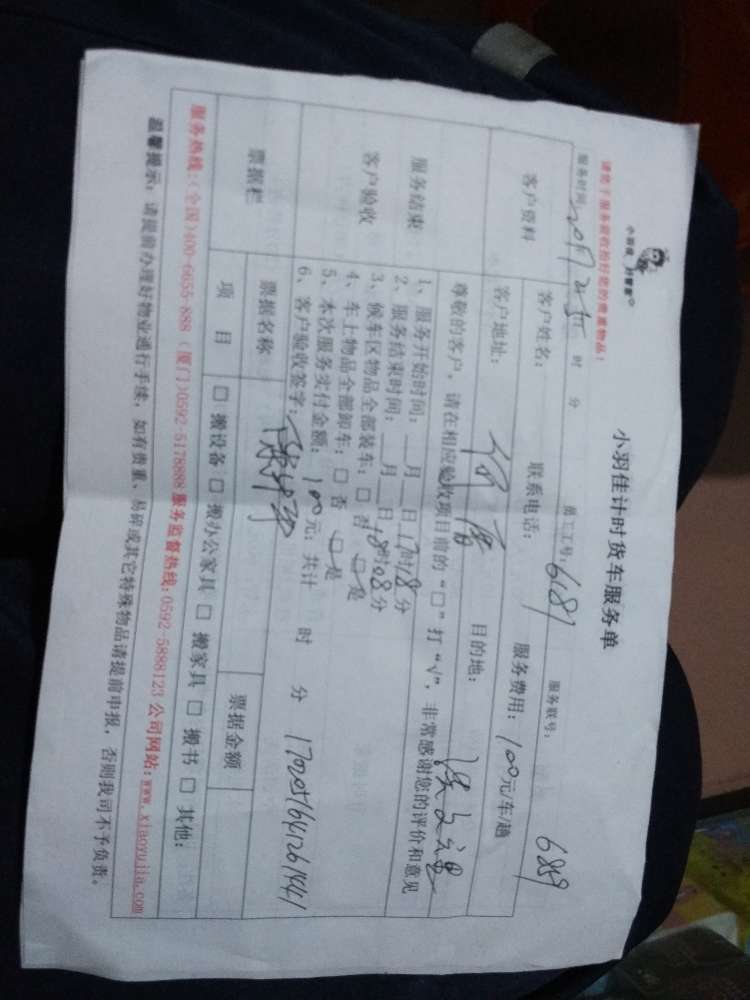 小羽佳 好管家
小羽佳计时货车服务单
请您于服务前收拾好您的贵重物品！
服务时间: 时 分 员工工号: 6187 服务联号: 6859
客户资料
客户姓名： 联系电话： 服务费用：100元/车/趟
客户地址： 目的地：
服务结束
客户验收
尊敬的客户，请在相应验收项目前的“□”打“√”，非常感谢您的评价和意见
1、服务开始时间：__月__日17时18分
2、服务结束时间：__月__日18时08分
3、候车区物品全部装车：□ 否 □ 是
4、车上物品全部卸车：□ 否 □ 是
5、本次服务实付金额：100元；共计 时 分
6、客户验收签字：
票据栏
票据名称 票据金额
项 目 □ 搬设备 □ 搬办公家具 □ 搬家具 □ 搬书 □ 其他：
服务热线：(全国)400-6655-888 (厦门)0592-5178888 服务监督热线:0592-5888123 公司网站:www.xiaoyujia.com
温馨提示：请提前办理好物业通行手续，如有贵重、易碎或其它特殊物品请提前申报，否则我司不予负责。